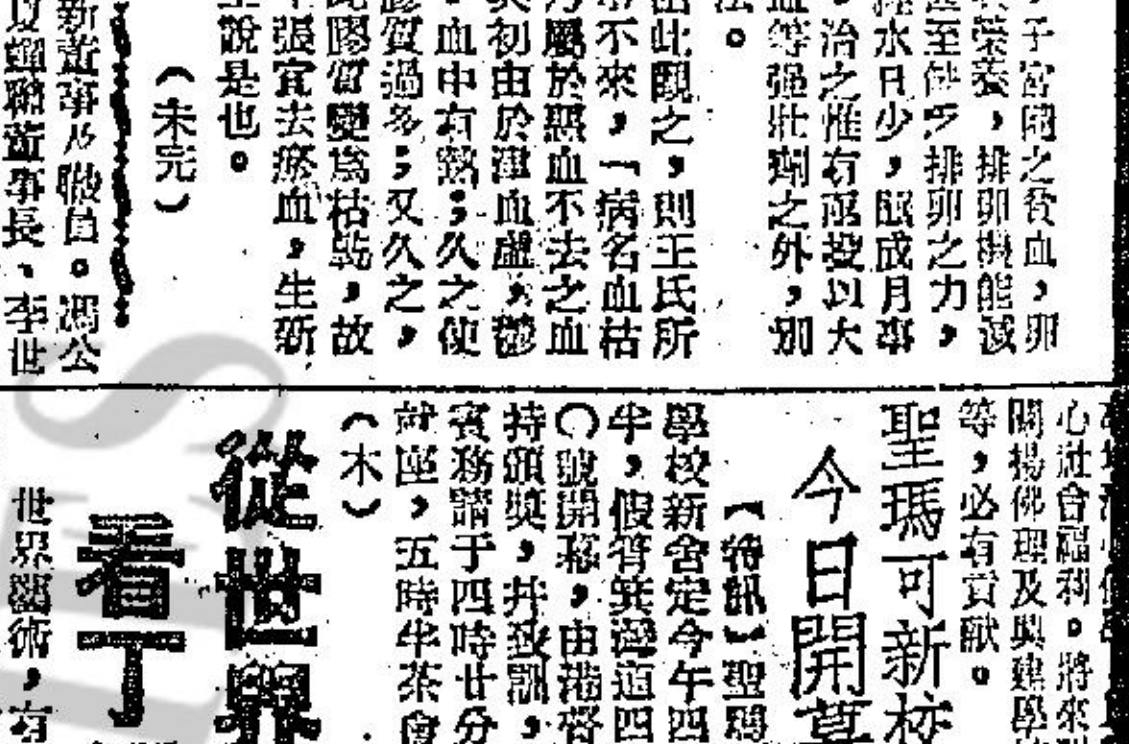 子宮體之貧血，卵
榮養，排卵機能減
至缺乏排卵之力，
經水日少，釀成月事
，治之惟有亟投以大
血等强壯劑之外，別
法。
此觀之，則王氏所
不來，「病名血枯
乃屬於惡血不去之血
初由於津血虛，鬱
，血中有熱；久之使
膠質過多；又久之，
此膠質變爲枯乾，故
張宜去瘀血，生新
說是也。
（未完）
新董事及職員。馮公
董事長、李世
心社會福利。將來對
闡揚佛理及興建學
等，必有貢献。
聖瑪可新校
今日開幕
【特訊】聖瑪
學校新舍定今午四
半，假筲箕灣道四
〇號開幕，由港督
持頒奬，幷致訓，
賓務請于四時廿分
就座，五時半茶會
（木）
從世界
看丁
世界藝術，有